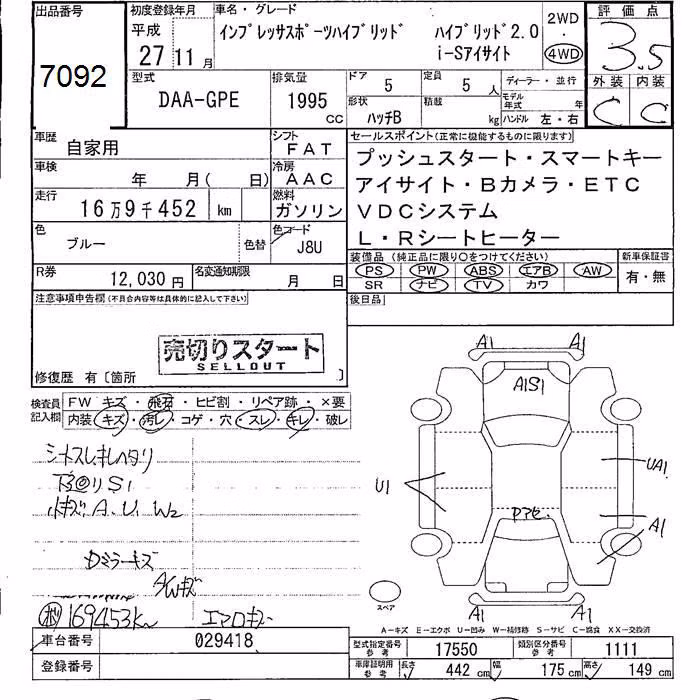 出品番号
7092
初度登録年月
平成
27 11 月
車名・グレード
インプレッサスポーツハイブリッド ハイブリッド2.0
i-Sアイサイト
2WD
・
4WD
評価点
3.5
外装 内装
C C
型式
DAA-GPE
排気量
1995
CC
ドア 5
定員 5 人
形状 ハッチB
積載 kg
ディーラー・並行
モデル年式 年
ハンドル 左・右
車歴 自家用
シフト FAT
車検 年 月( 日)
冷房 AAC
走行 16万9千452 km
燃料 ガソリン
色 ブルー 色替
色コード J8U
R券 12,030円
名変通知期限 月 日
セールスポイント(正常に機能するものに限ります)
プッシュスタート・スマートキー
アイサイト・Bカメラ・ETC
VDCシステム
L・Rシートヒーター
装備品 (純正品に限り○をつけてください)
PS PW ABS エアB AW
SR ナビ TV カワ
新車保証書
有・無
後日品
注意事項申告欄(不具合内容等は具体的に記入して下さい)
売切りスタート
SELLOUT
修復歴 有〔箇所 〕
検査員記入欄
FW キズ・飛石・ヒビ割・リペア跡・×要
内装 キズ・汚レ・コゲ・穴・スレ・キレ・破レ
S1
A.U.W2
ミラーキズ
A/Wキズ
169453km
エアロキズ
A1 A1
A1S1
U1
UA1
A1
A1 A1
スペア
A-キズ E-エクボ U-凹み W-補修跡 S-サビ C-腐食 XX-交換済
車台番号 029418
登録番号
型式指定番号 参考 17550
類別区分番号 参考 1111
車庫証明用 参考 長さ 442 cm 幅 175 cm 高さ 149 cm